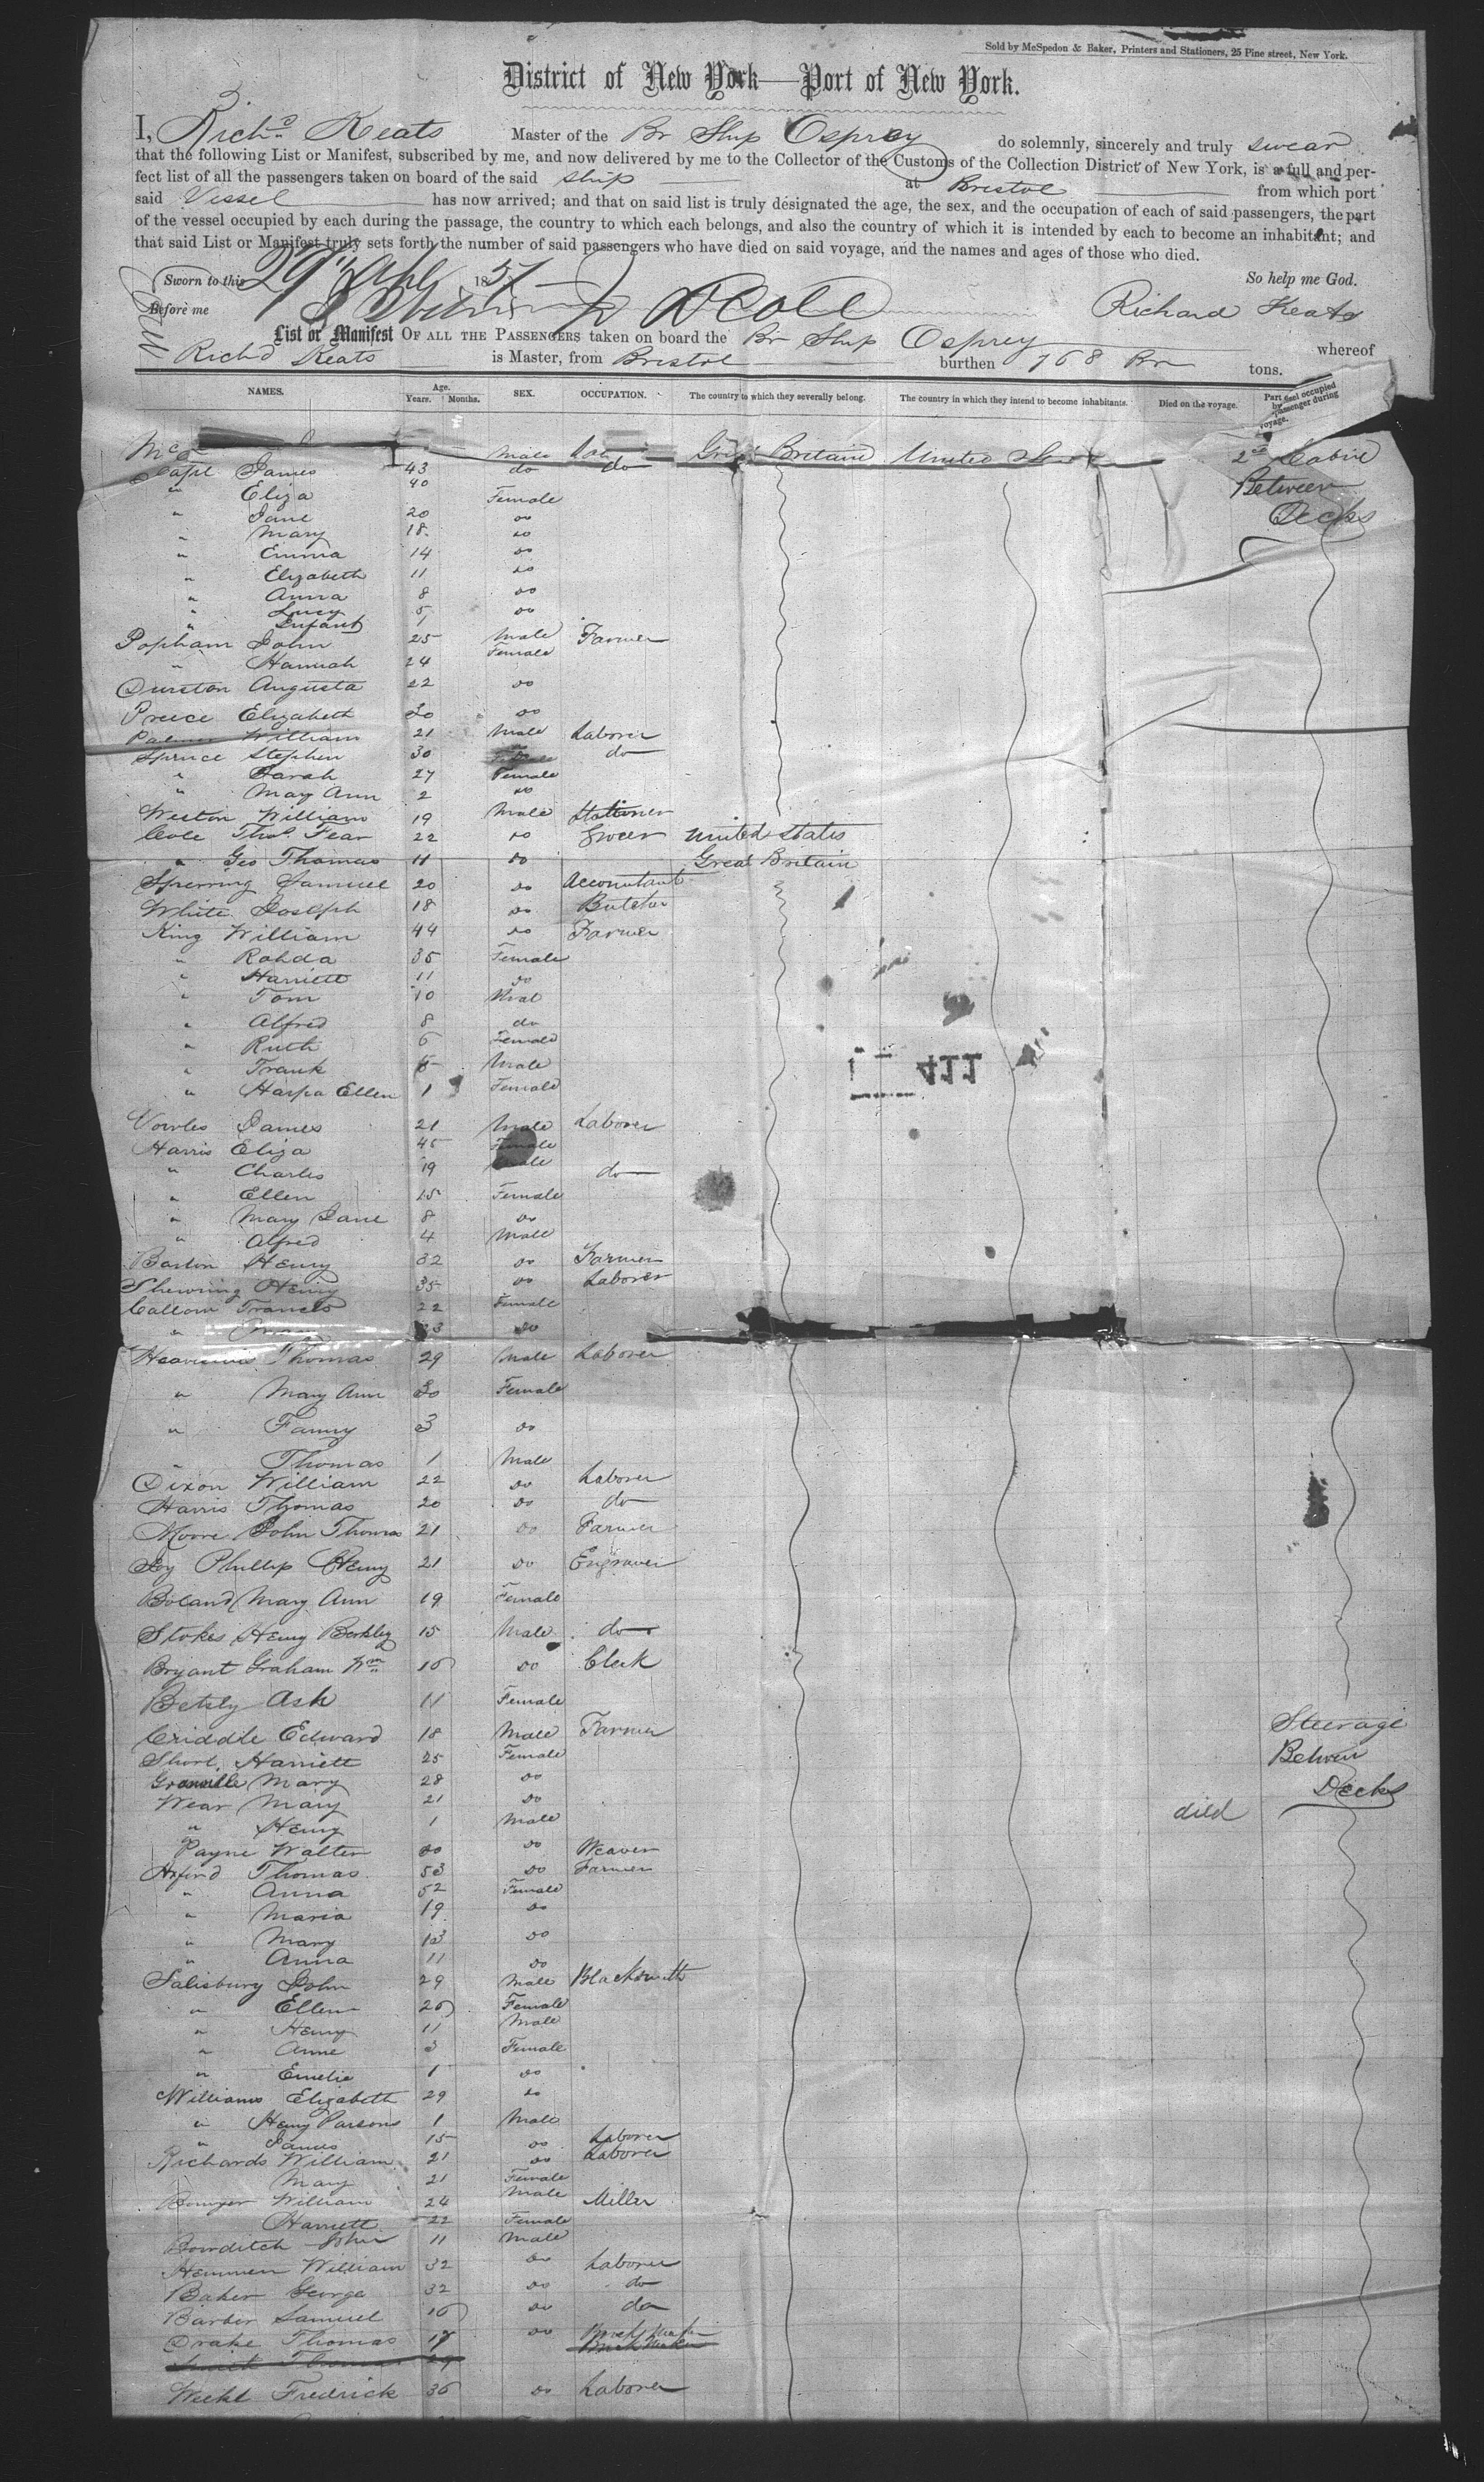 Sold by McSpedon & Baker, Printers and Stationers, 25 Pine street, New York.
District of New York—Port of New York.
I, Richd Keats Master of the Br Ship Osprey do solemnly, sincerely and truly swear
that the following List or Manifest, subscribed by me, and now delivered by me to the Collector of the Customs of the Collection District of New York, is a full and per-
fect list of all the passengers taken on board of the said ship at Bristol from which port
said Vessel has now arrived; and that on said list is truly designated the age, the sex, and the occupation of each of said passengers, the part
of the vessel occupied by each during the passage, the country to which each belongs, and also the country of which it is intended by each to become an inhabitant; and
that said List or Manifest truly sets forth the number of said passengers who have died on said voyage, and the names and ages of those who died.
Sworn to this 29 Apl 1851 So help me God.
Before me Richard Keats
List or Manifest OF ALL THE PASSENGERS taken on board the Br Ship Osprey whereof
Richd Keats is Master, from Bristol burthen 768 Br tons.
NAMES. Age. Years. Months. SEX. OCCUPATION. The country to which they severally belong. The country in which they intend to become inhabitants. Died on the voyage. Part of vessel occupied by passenger during voyage.
43 Male Great Britain United 2nd Cabin
James 40 do do Between
" Eliza Female Decks
" Jane 20 do
" Mary 18 do
" Emma 14 do
" Elizabeth 11 do
" Anna 8 do
" Lucy 5 do
" Infant 1
Popham John 25 Male Farmer
" Hannah 24 Female
Durston Augusta 22 do
Preece Elizabeth 20 do
Palmer William 21 Male Laborer
Spruce Stephen 30 do do
" Sarah 27 Female
" Mary Ann 2 do
Weston William 19 Male Stationer
Cole Thos. Fear 22 do Grocer United States
" Geo Thomas 11 do Great Britain
Sperring Samuel 20 do Accountant
White Joseph 18 do Butcher
King William 44 do Farmer
" Rohda 35 Female
" Harriett 11 do
" Tom 10 Mal
" Alfred 8 do
" Ruth 6 Female
" Frank 5 Male
" Harpa Ellen 1 Female
411
Vowles James 21 Male Laborer
Harris Eliza 45 Female
" Charles 19 Male do
" Ellen 15 Female
" Mary Jane 8 do
" Alfred 4 Male
Bartin Henry 32 do Farmer
Shewring Henry 35 do Laborer
Callow Frances 22 Female
" 23 do
Thomas 29 Male Laborer
" Mary Ann 30 Female
" Fanny 3 do
" Thomas 1 Male
Dixon William 22 do Laborer
Harris Thomas 20 do do
Moore John Thomas 21 do Farmer
Ivy Phillip Henry 21 do Engraver
Boland Mary Ann 19 Female
Stokes Henry Berkley 15 Male do
Bryant Graham Wm 16 do Clerk
Betsly Ash 11 Female
Criddle Edward 18 Male Farmer Steerage
Short, Harriett 25 Female Between
Granville Mary 28 do Decks
Wear Mary 21 do
" Henry 1 Male died
Payne Walter 20 do Weaver
Axford Thomas 53 do Farmer
" Anna 52 Female
" Maria 19 do
" Mary 13 do
" Anna 11 do
Salisbury John 29 Male Blacksmith
" Ellen 26 Female
" Henry 11 Male
" Anne 3 Female
" Emelie 1 do
Williams Elizabeth 29 do
" Henry Parsons 1 Male
" James 15 do Laborer
Richards William 21 do Laborer
Mary 21 Female
William 24 Male Miller
Harriett 22 Female
Bowditch John 11 Male
Hemmen William 32 do Laborer
Baker George 32 do do
Barber Samuel 16 do do
Drake Thomas 17 do Brick Maker
Thomas 29 Brick Maker
Weekl Fredrick 36 do Laborer